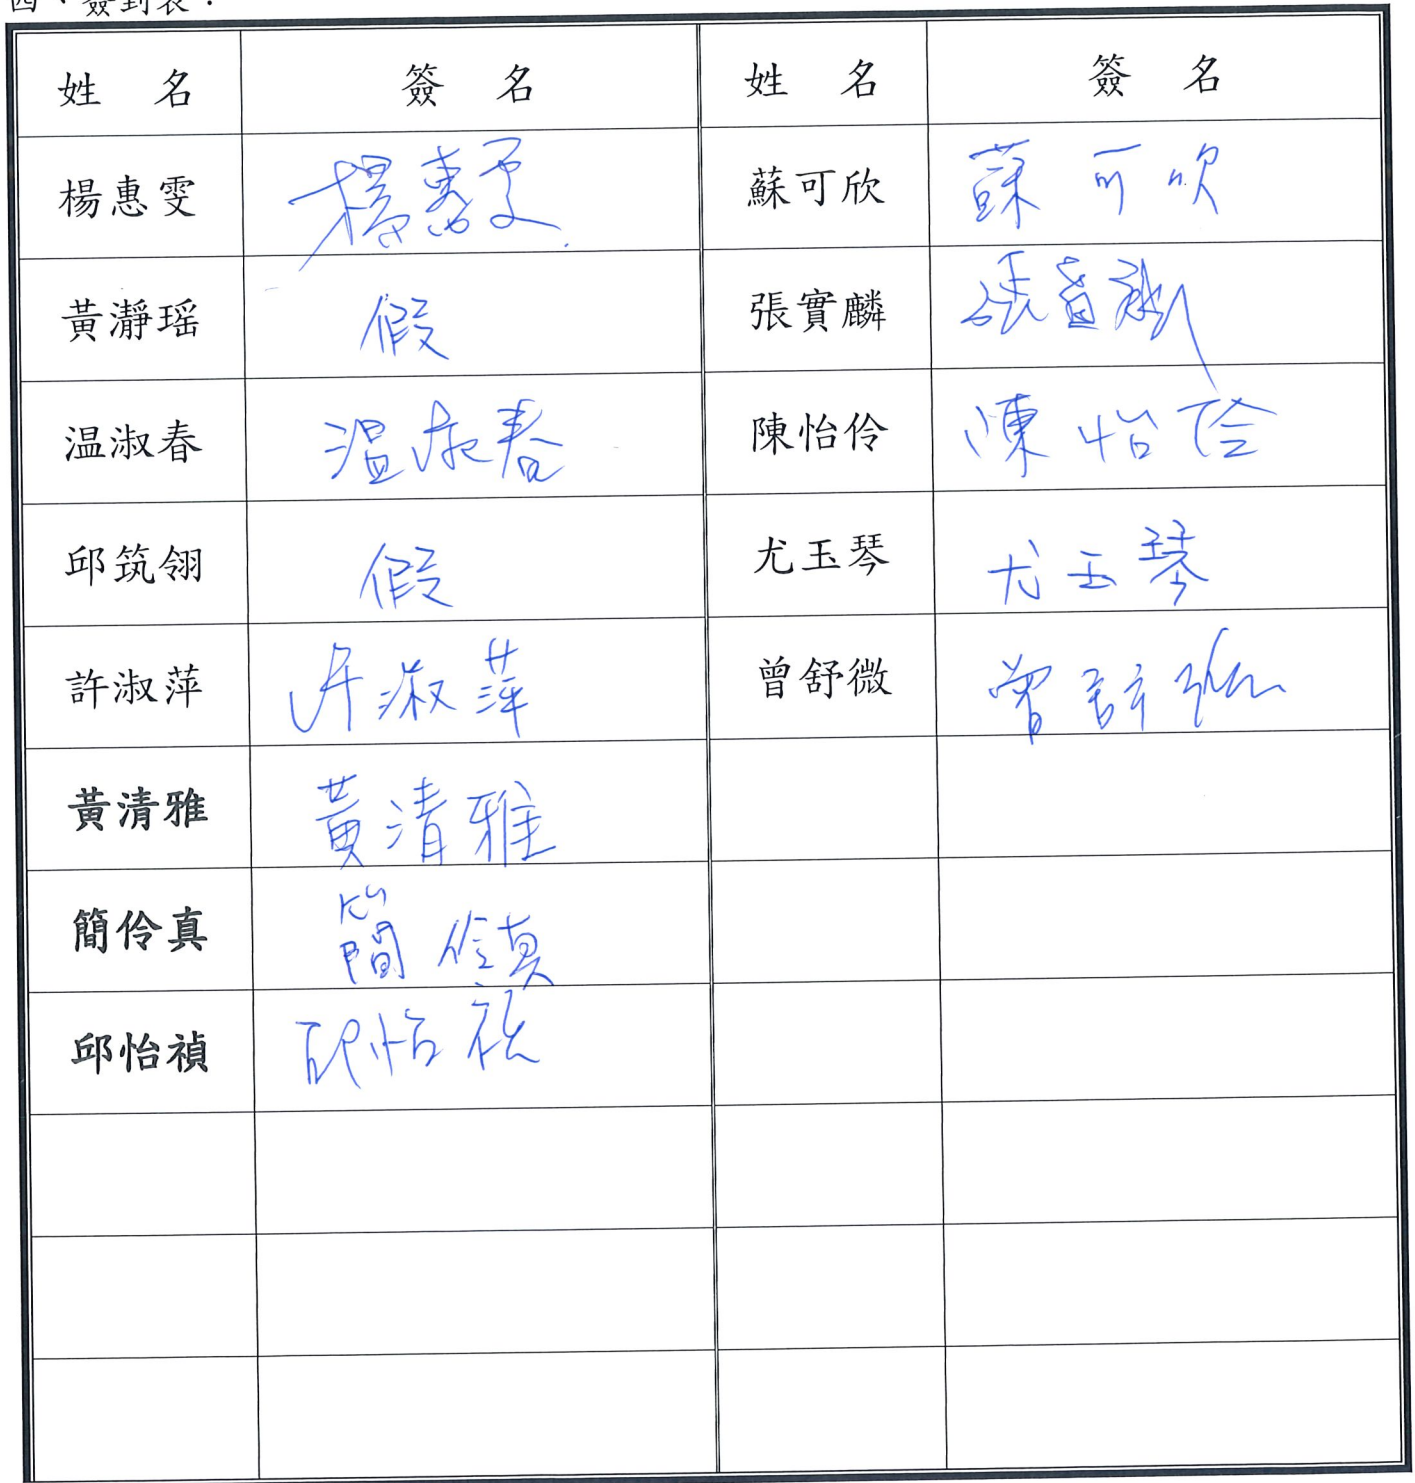 四、簽到表：
姓 名 簽 名 姓 名 簽 名
楊惠雯 楊惠雯 蘇可欣 蘇可欣
黃瀞瑶 假 張實麟 張實麟
温淑春 温淑春 陳怡伶 陳怡伶
邱筑翎 假 尤玉琴 尤玉琴
許淑萍 許淑萍 曾舒微 曾舒微
黃清雅 黃清雅
簡伶真 簡伶真
邱怡禎 邱怡禎